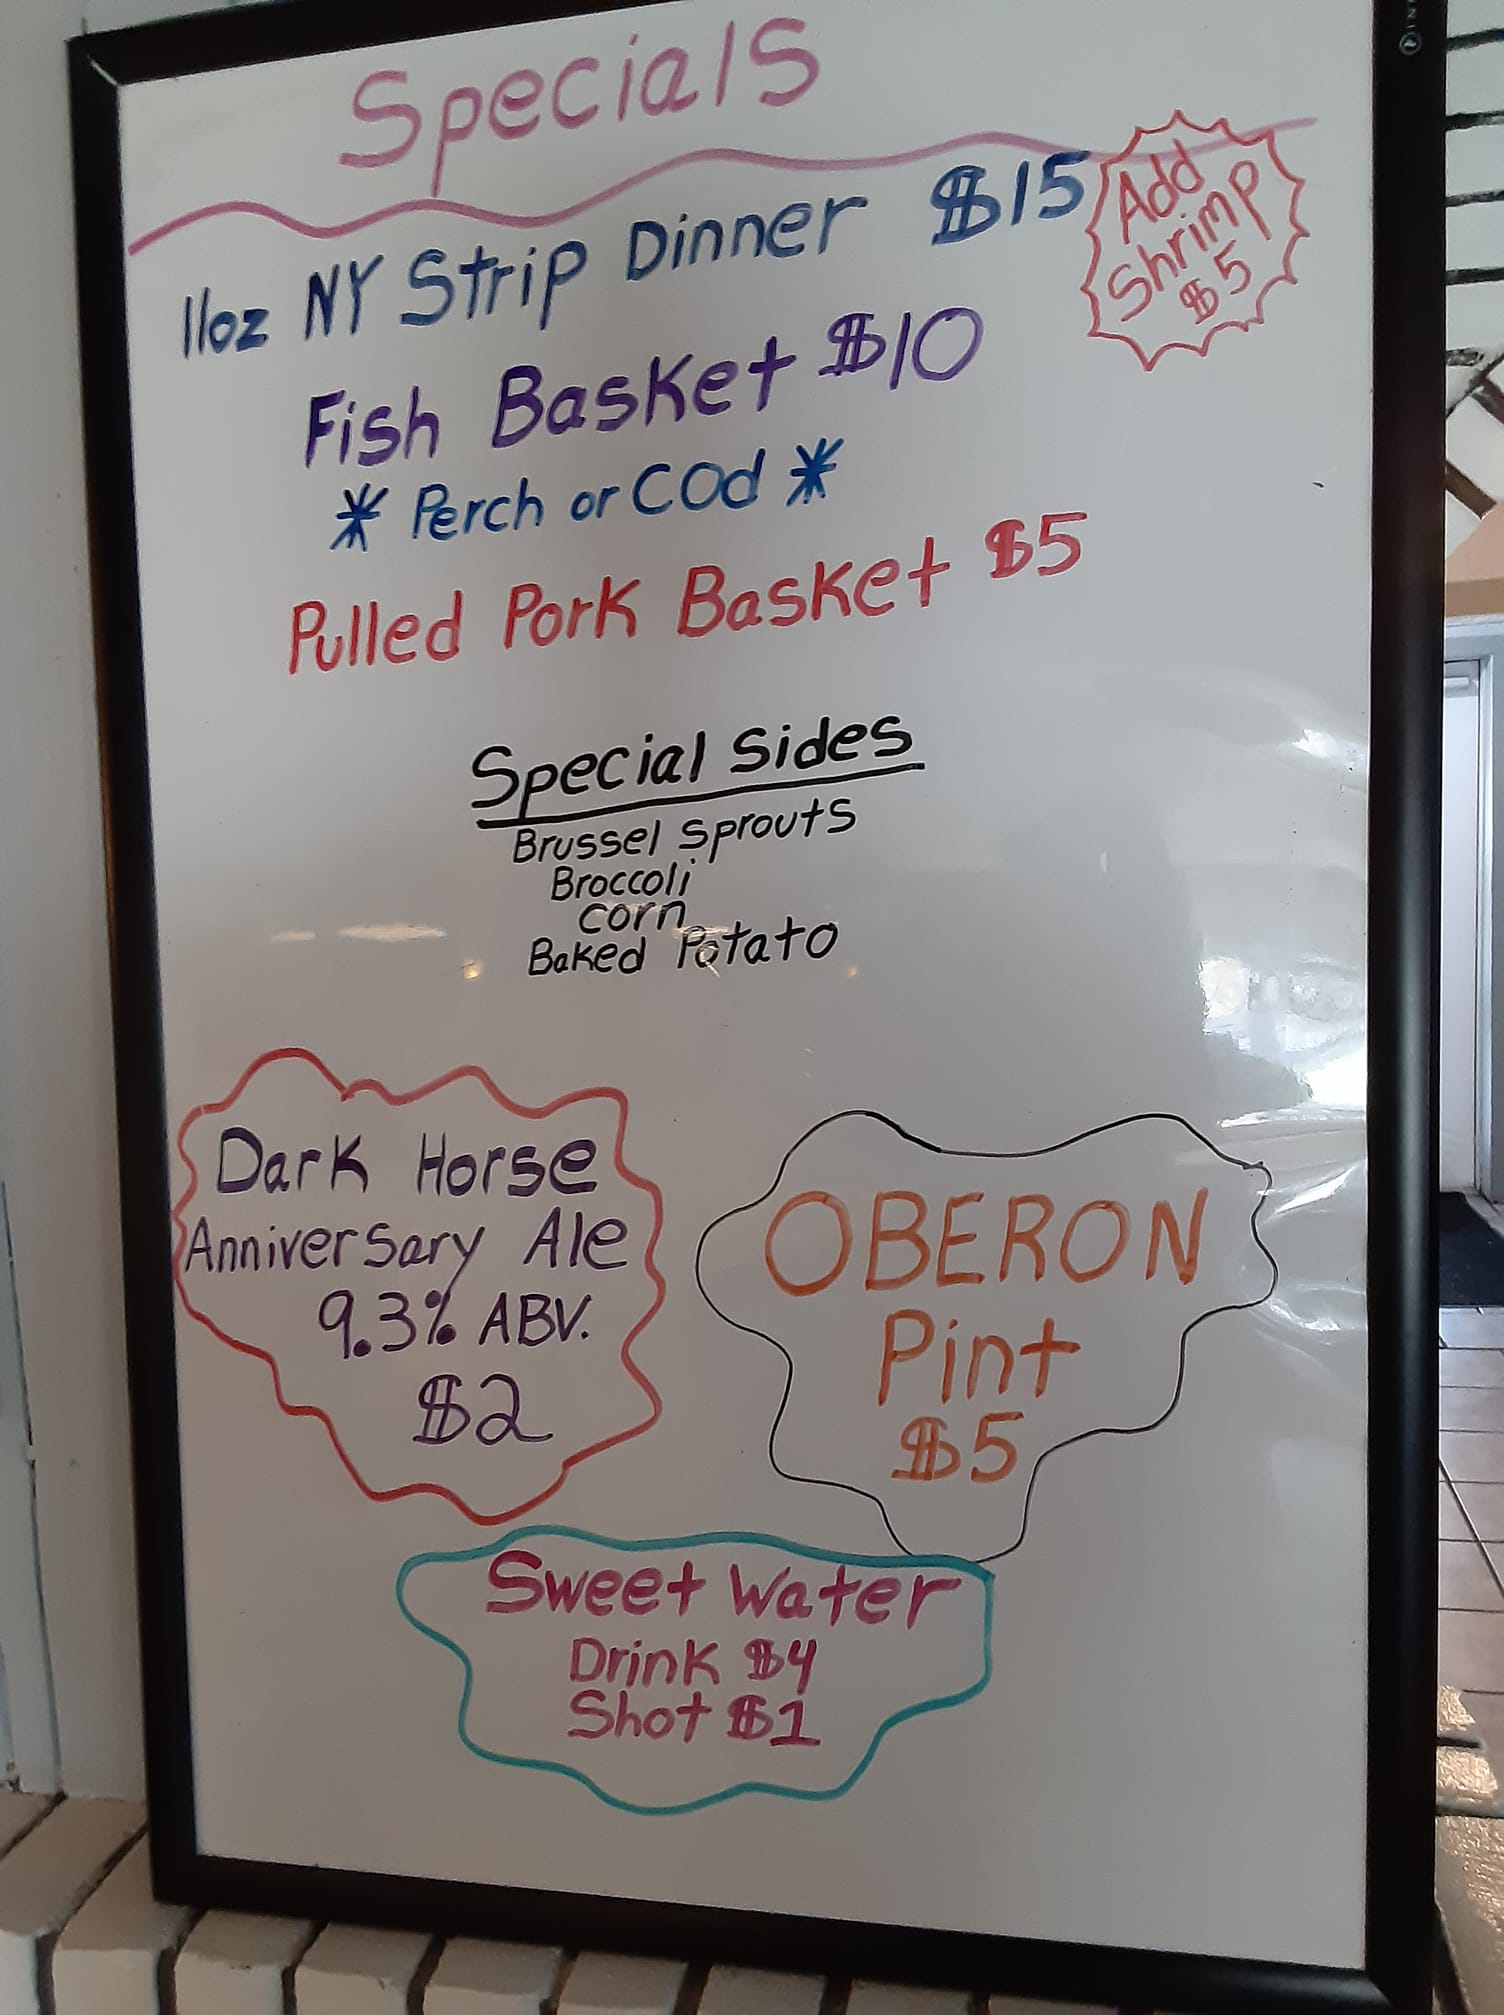 Specials
11oz NY Strip Dinner $15
Add
Shrimp
$5
Fish Basket $10
* Perch or COd *
Pulled Pork Basket $5
Special Sides
Brussel Sprouts
Broccoli
corn
Baked Potato
Dark Horse
Anniversary Ale
9.3% ABV.
$2
OBERON
Pint
$5
Sweet Water
Drink $4
Shot $1